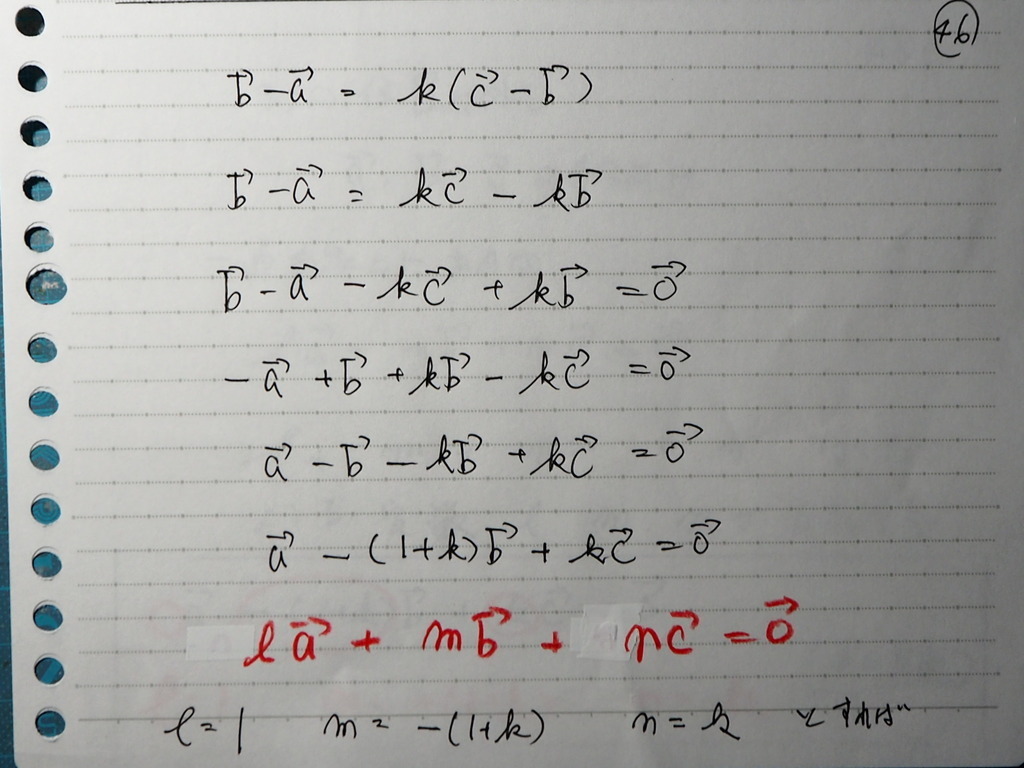 46
b⃗ - a⃗ = k(c⃗ - b⃗)
b⃗ - a⃗ = kc⃗ - kb⃗
b⃗ - a⃗ - kc⃗ + kb⃗ = 0⃗
- a⃗ + b⃗ + kb⃗ - kc⃗ = 0⃗
a⃗ - b⃗ - kb⃗ + kc⃗ = 0⃗
a⃗ - (1+k)b⃗ + kc⃗ = 0⃗
ℓa⃗ + mb⃗ + nc⃗ = 0⃗
ℓ = 1 m = -(1+k) n = k とすれば